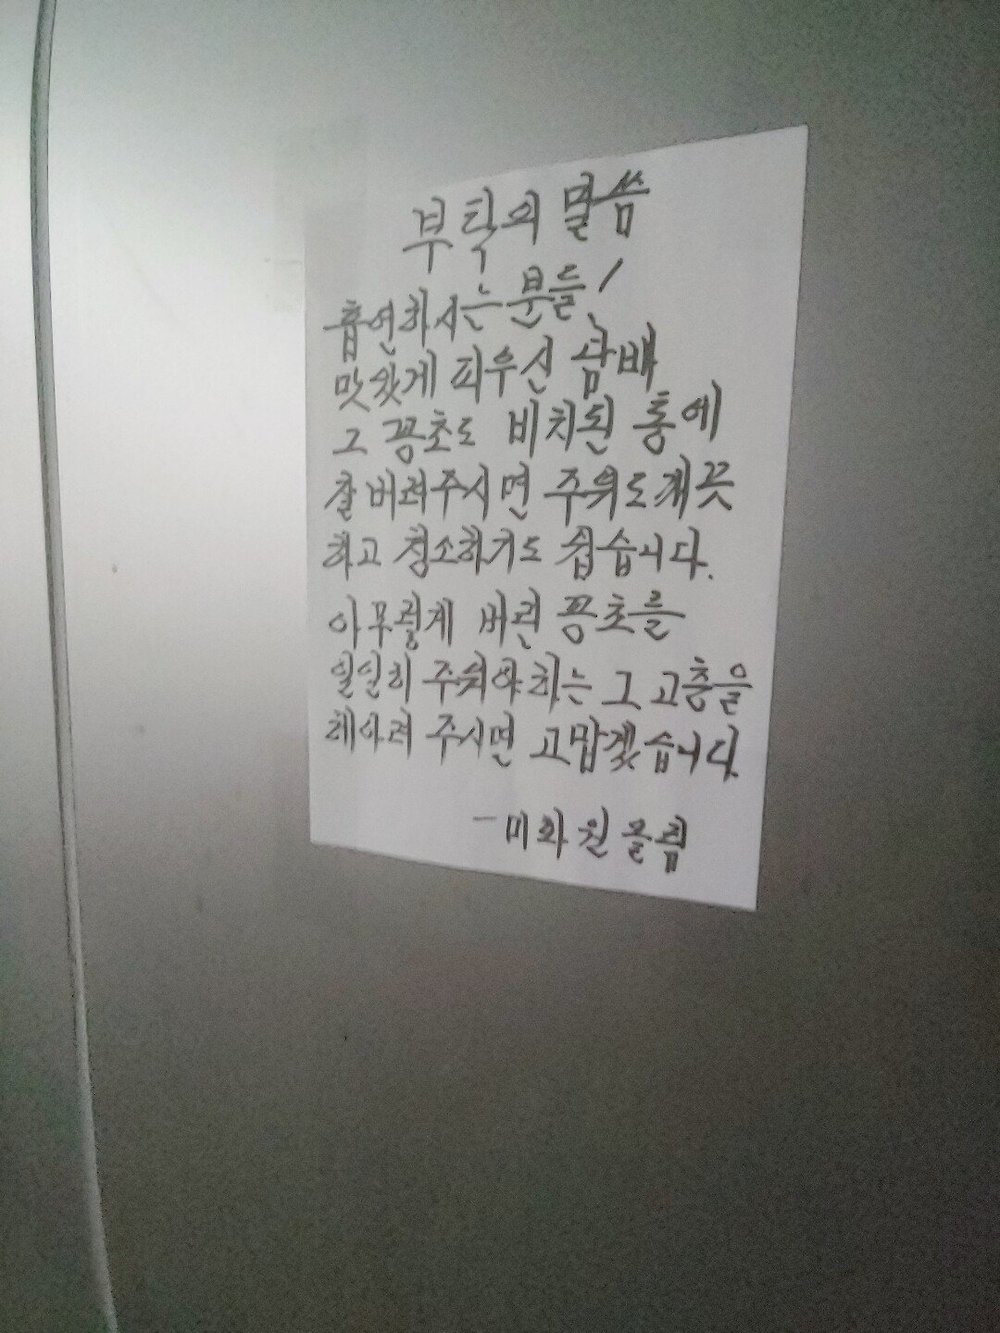 부탁의 말씀
흡연하시는 분들!
맛있게 피우신 담배
그 꽁초도 비치된 통에
잘 버려주시면 주위도 깨끗
하고 청소하기도 쉽습니다.
아무렇게 버린 꽁초를
일일히 주워야 하는 그 고충을
헤아려 주시면 고맙겠습니다.
- 미화원 올림